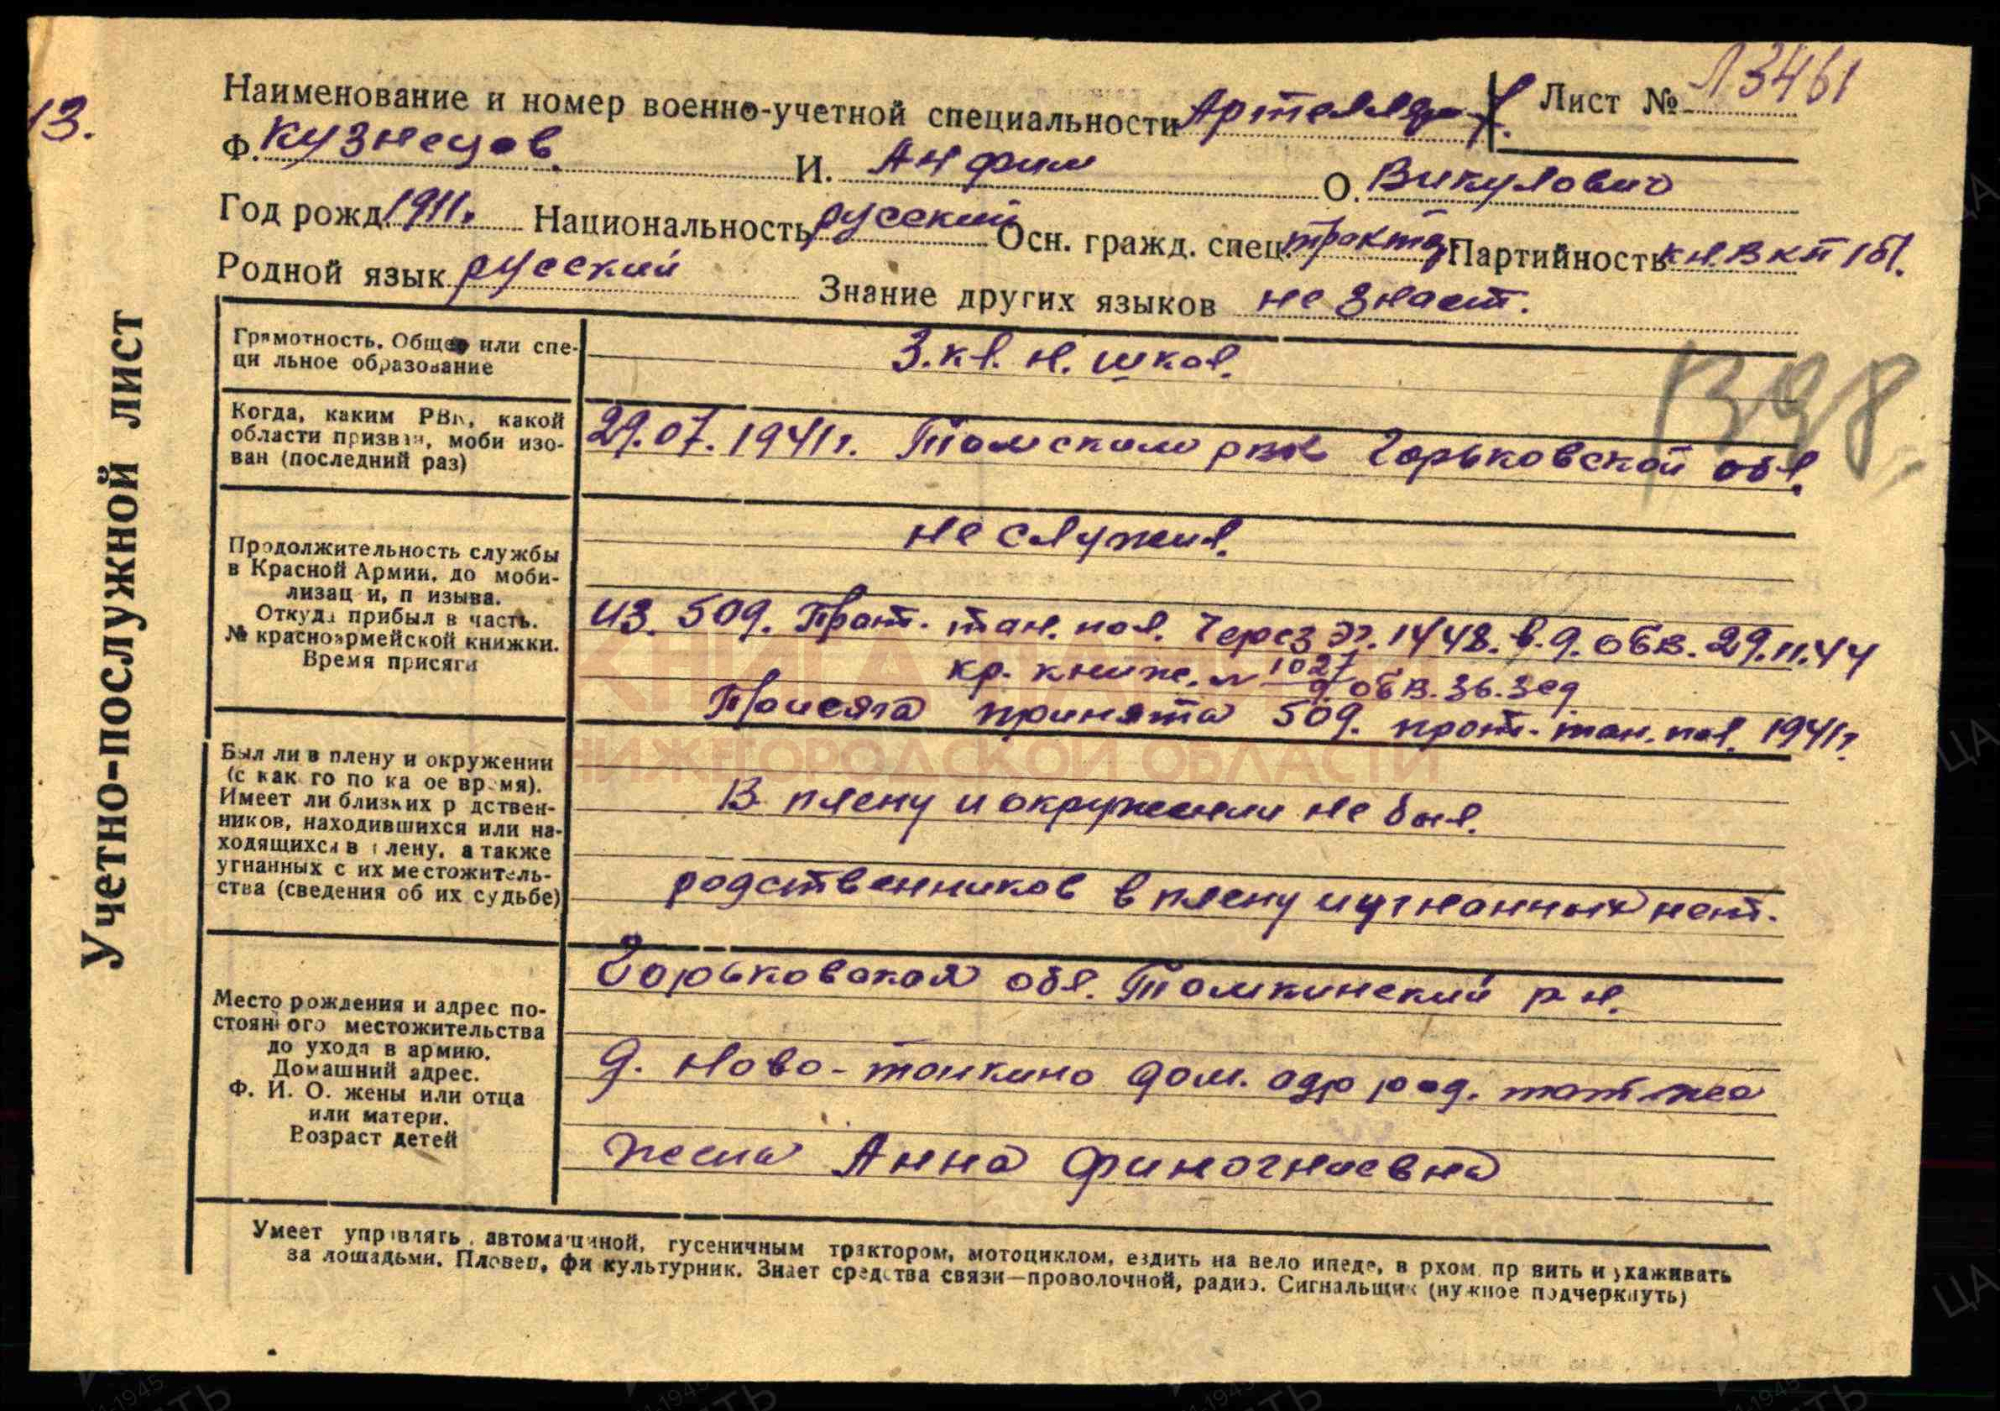 13.
Наименование и номер военно-учетной специальности Артелляр Лист № 13461
Ф. Кузнецов. И. Анфим О. Викулович
Год рожд. 1911г. Национальность русский Осн. гражд. спец. тракт Партийность кн. ВКП(б).
Родной язык русский Знание других языков не знает.
Учетно-послужной лист
Грамотность. Общее или спе-
ци льное образование
3.кл. н. школ.
1398
Когда, каким РВК, какой
области призван, моби изо-
ван (последний раз)
29.07.1941г. Томским рвк Горьковской обл.
Продолжительность службы
в Красной Армии, до моби-
лизац и, п изыва.
Откуда прибыл в часть.
№ красноармейской книжки.
Время присяги
не служил.
из. 509. Прот. тан. пол. Через Эг. 1448. в.д. ОБВ. 29.11.44
кр. книж. № 1027/9 ОБВ. Зб. Зед
Присяга принята 509. прот. тан. пол. 1941г.
КНИГА ПАМЯТИ
НИЖЕГОРОДСКОЙ ОБЛАСТИ
Был ли в плену и окружении
(с как го по ка ое время).
Имеет ли близких р дствен-
ников, находившихся или на-
ходящихся в плену, а также
угнанных с их местожитель-
ства (сведения об их судьбе)
В плену и окружении не был.
родственников в плену и угнанных нет.
Место рождения и адрес по-
стоян ого местожительства
до ухода в армию.
Домашний адрес.
Ф. И. О. жены или отца
или матери.
Возраст детей
Горьковская обл. Томкинский р-н.
д. Ново-тонкино дом. адр род. тот же
жена Анна Финогиевна
Умеет управлять автомашиной, гусеничным трактором, мотоциклом, ездить на вело ипеде, в рхом, пр вить и ухаживать
за лошадьми. Пловец, фи культурник. Знает средства связи—проволочной, радио. Сигнальщик (нужное подчеркнуть)